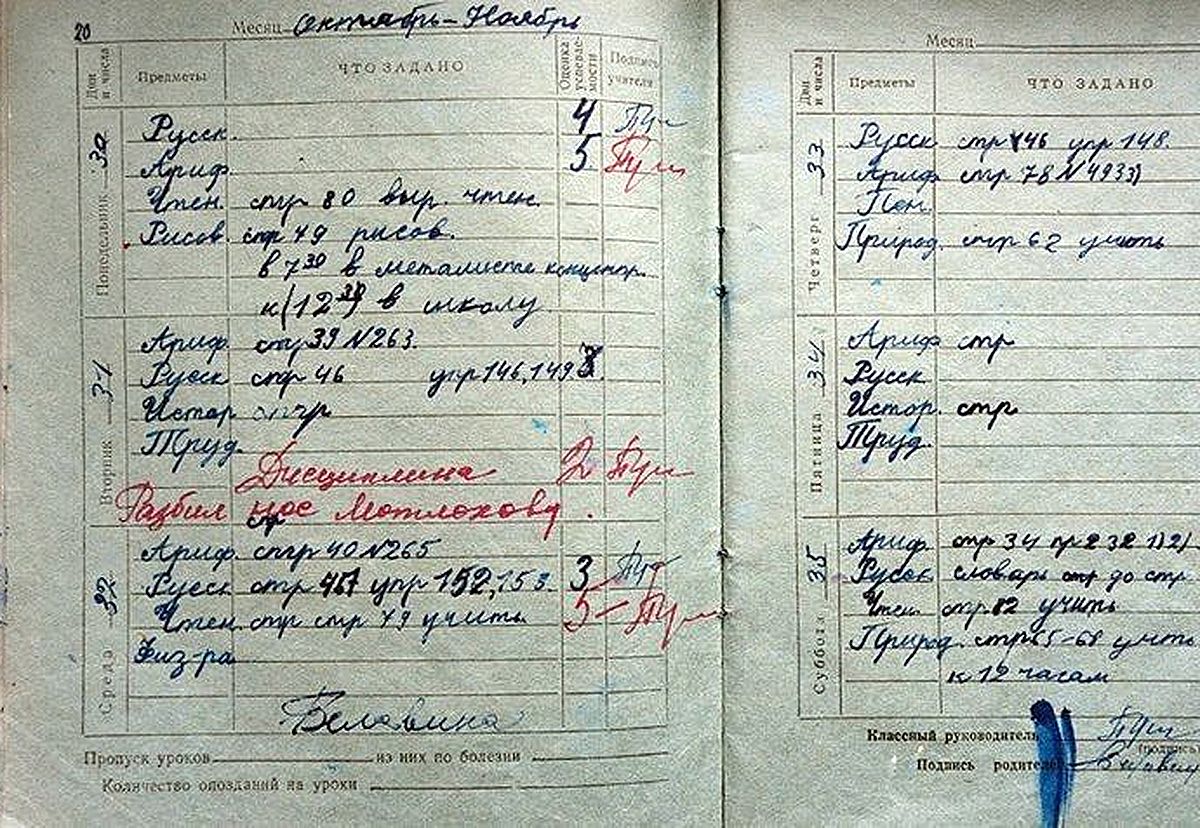 20
Месяц Октябрь-Ноябрь
Дни и числа Предметы ЧТО ЗАДАНО Оценка успевае-мости Подпись учителя
Понедельник 30
Русск. 4
Ариф. 5
Чтен. стр 80 выр. чтен.
Рисов. стр 49 рисов.
в 7 30 в металисте концерт.
к (12 30) в школу
Вторник 31
Ариф. стр 39 N263.
Русск стр 46 упр 146, 149 3.
Истор стр
Труд.
Дисциплина 2
Разбил нос Мотлохову.
Среда 32
стр
Ариф. стр 40 N265
Русск стр 47 упр 152, 153. 3
Чтен. стр стр 79 учить. 5-
Физ-ра
Белавина
Пропуск уроков из них по болезни
Количество опозданий на уроки
Месяц
Дни и числа Предметы ЧТО ЗАДАНО
Четверг 33
Русск стр 46 упр 148.
Ариф. стр 78 N4933)
Пен.
Природ. стр 62 учить
Пятница 34
Ариф стр
Русск
Истор. стр.
Труд.
Суббота 35
Ариф. стр 34 пр 232 1)2)
Русск словарь стр до стр
Чтен. стр 82 учить
Природ. стр 65-68 учить
к 12 часам
Классный руководитель
(подпись)
Подпись родителей